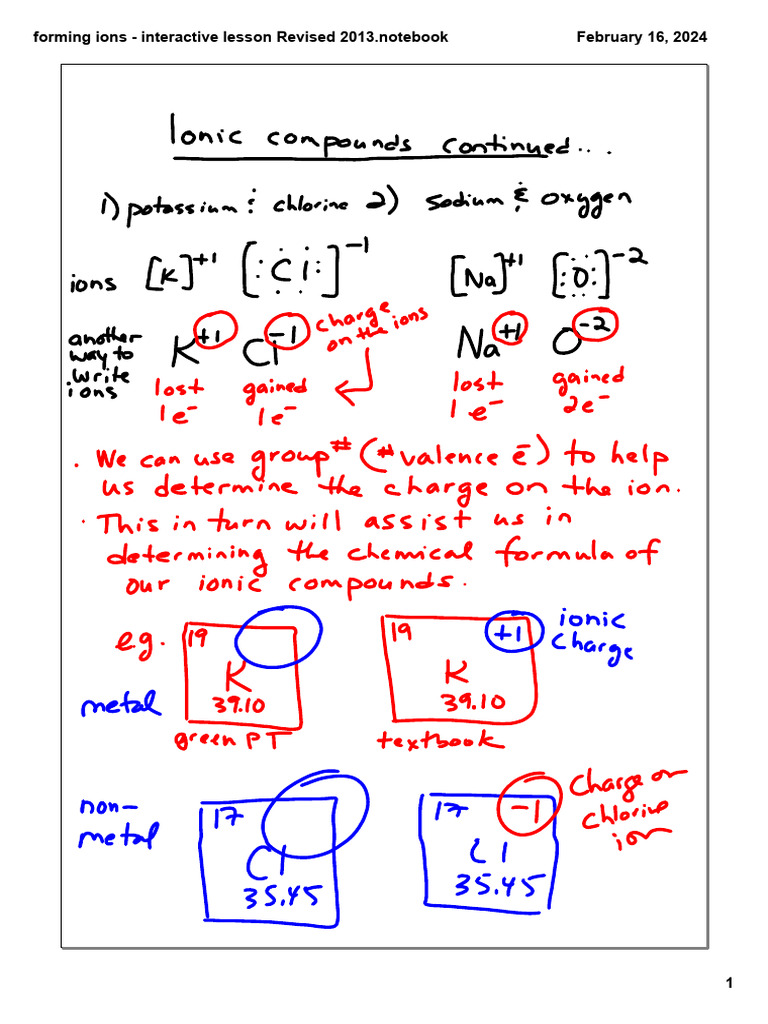 forming ions - interactive lesson Revised 2013.notebook February 16, 2024
Ionic compounds continued...
1) potassium & chlorine 2) sodium & oxygen
ions [K]+1 [Cl]-1 [Na]+1 [O]-2
another way to write ions K+1 Cl-1 charge on the ions Na+1 O-2
lost 1e- gained 1e- lost 1e- gained 2e-
• We can use group# (# valence e-) to help
us determine the charge on the ion.
• This in turn will assist us in
determining the chemical formula of
our ionic compounds.
e.g. 19 19 +1 ionic charge
metal K K
39.10 39.10
green PT textbook
non-metal 17 17 -1 Charge on chlorine ion
Cl Cl
35.45 35.45
1